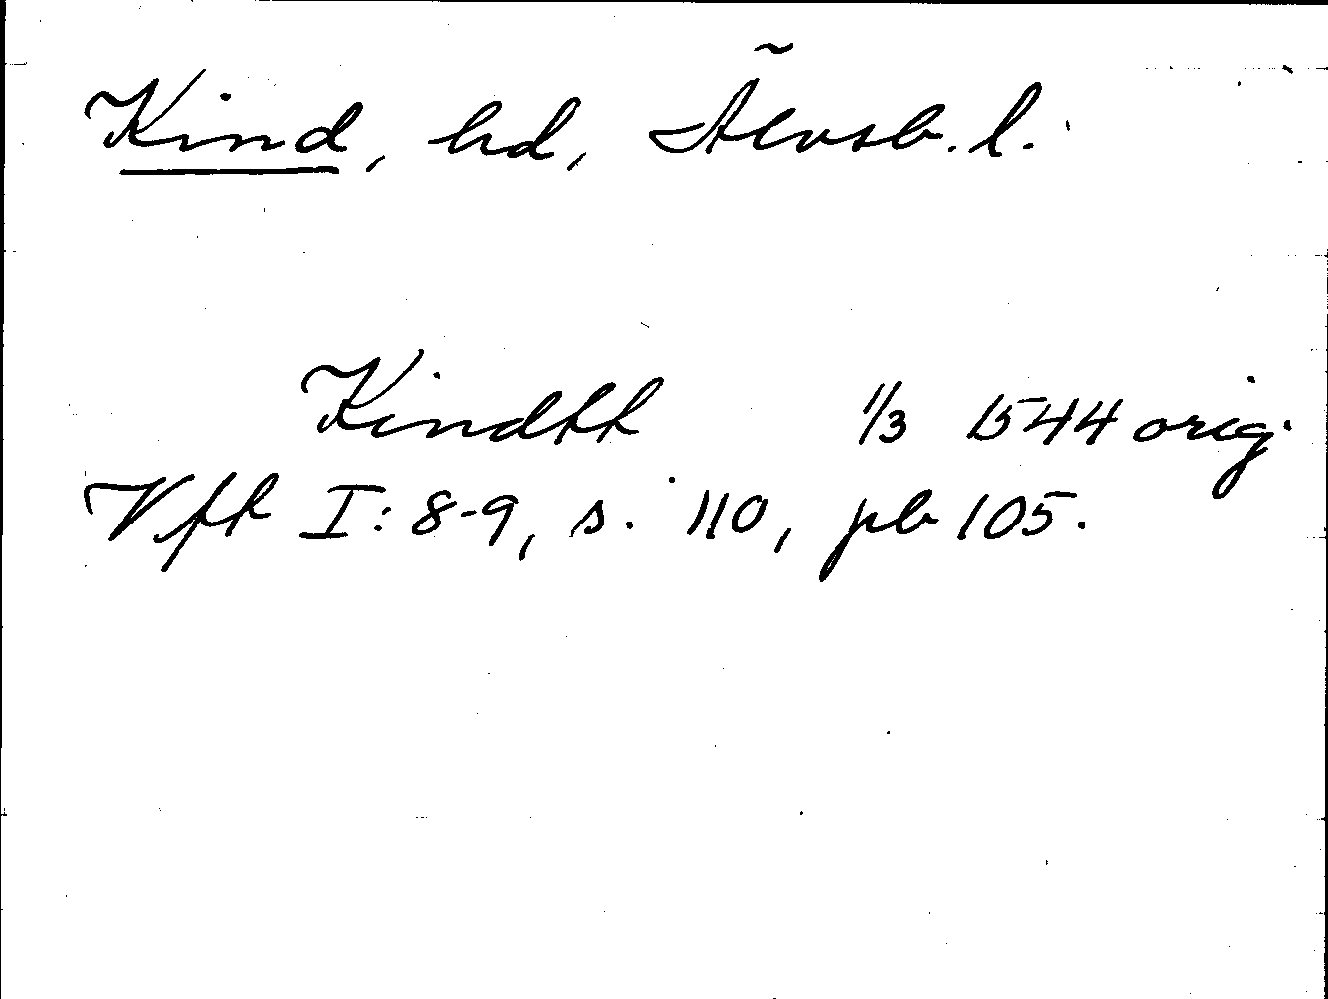 Kind, hd, Älvsb. l.
Kindtt 1/3 1544 orig.
Vft I: 8-9, s. 110, pb 105.